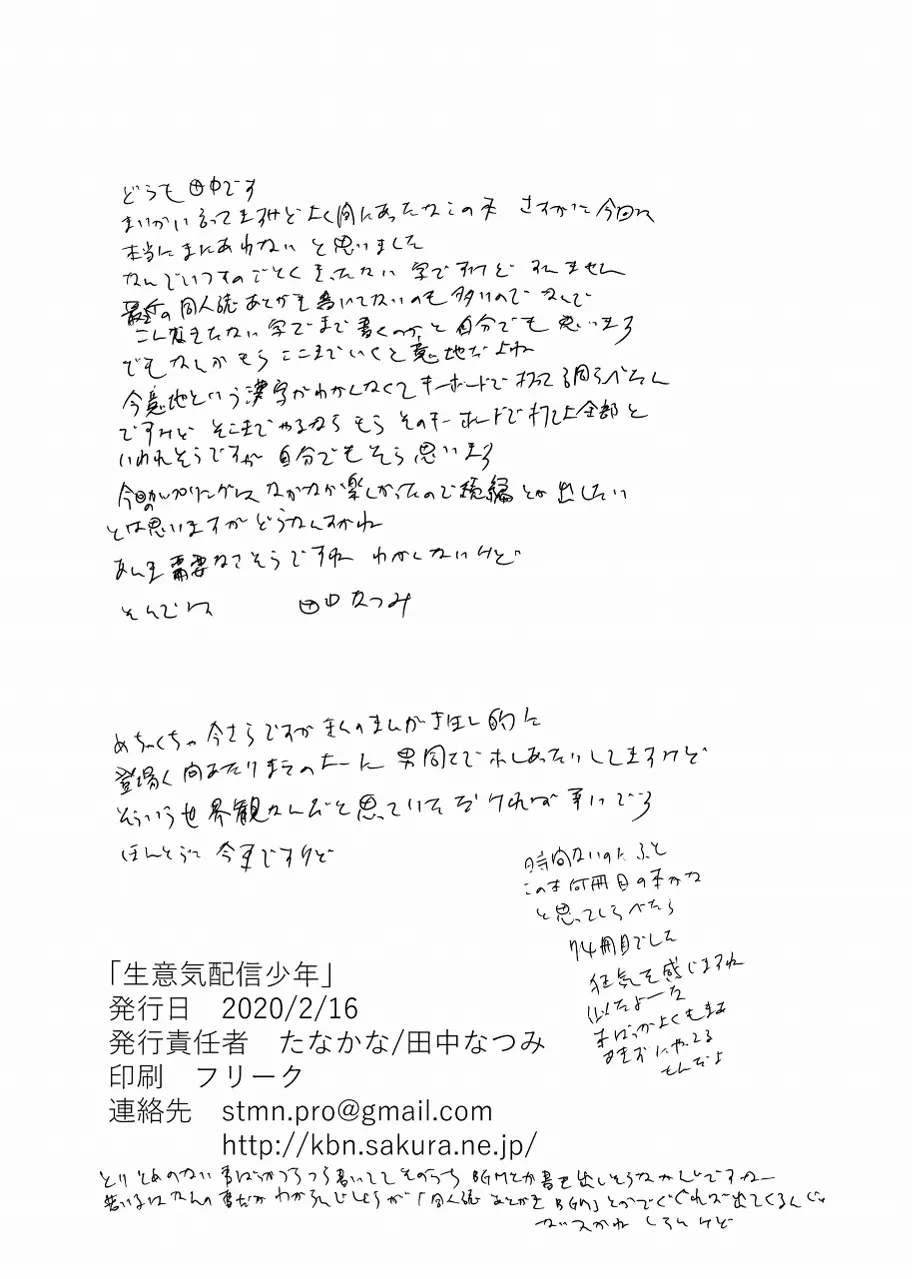 どうも田中です
まいかい言ってますけどよく間にあったなこの本 さすがに今回は
本当にまにあわないと思いました
なんでいつものごとくきったない字ですけどすいません
最近の同人誌あとがき書いてないのも多いのでなんで
こんなきたない字でまで書くのかと自分でも思います
でもなんかもうここまでいくと意地だよね
今意地という漢字がわかんなくてキーボードで打って調らべたん
ですけどそこまでやるならもうそのキーボードで打てよ全部と
いわれそうですが自分でもそう思います
今回のカップリングはなかなか楽しかったので続編とか出したい
とは思いますがどうなんすかね
あんま需要なさそうですね わかんないけど
そんでは 田中なつみ
めちゃくちゃ今さらですがぼくのまんがき生し的に
登場 向あたりまえのよーに男同士で しあったりしてますけど
そういう世界観なんだと思っていただければ幸いです
ほんとうに今更ですけど
時間ないのにふと
この本何冊目の本かな
と思ってしらべたら
74冊目でした
狂気を感じますね
似たよーな
本ばっかよくもまあ
あきずにやってる
もんだよ
「生意気配信少年」
発行日 2020/2/16
発行責任者 たなかな/田中なつみ
印刷 フリーク
連絡先 stmn.pro@gmail.com
http://kbn.sakura.ne.jp/
とりとめのない事ばっかつらつら書いててそのうちBGMとか書き出しそうなかんじですねー
若い子はなんの事だかわからんでしょうが「同人誌 あとがき BGM」とかでぐぐれば出てくるんじゃ
ないスかね しらんけど